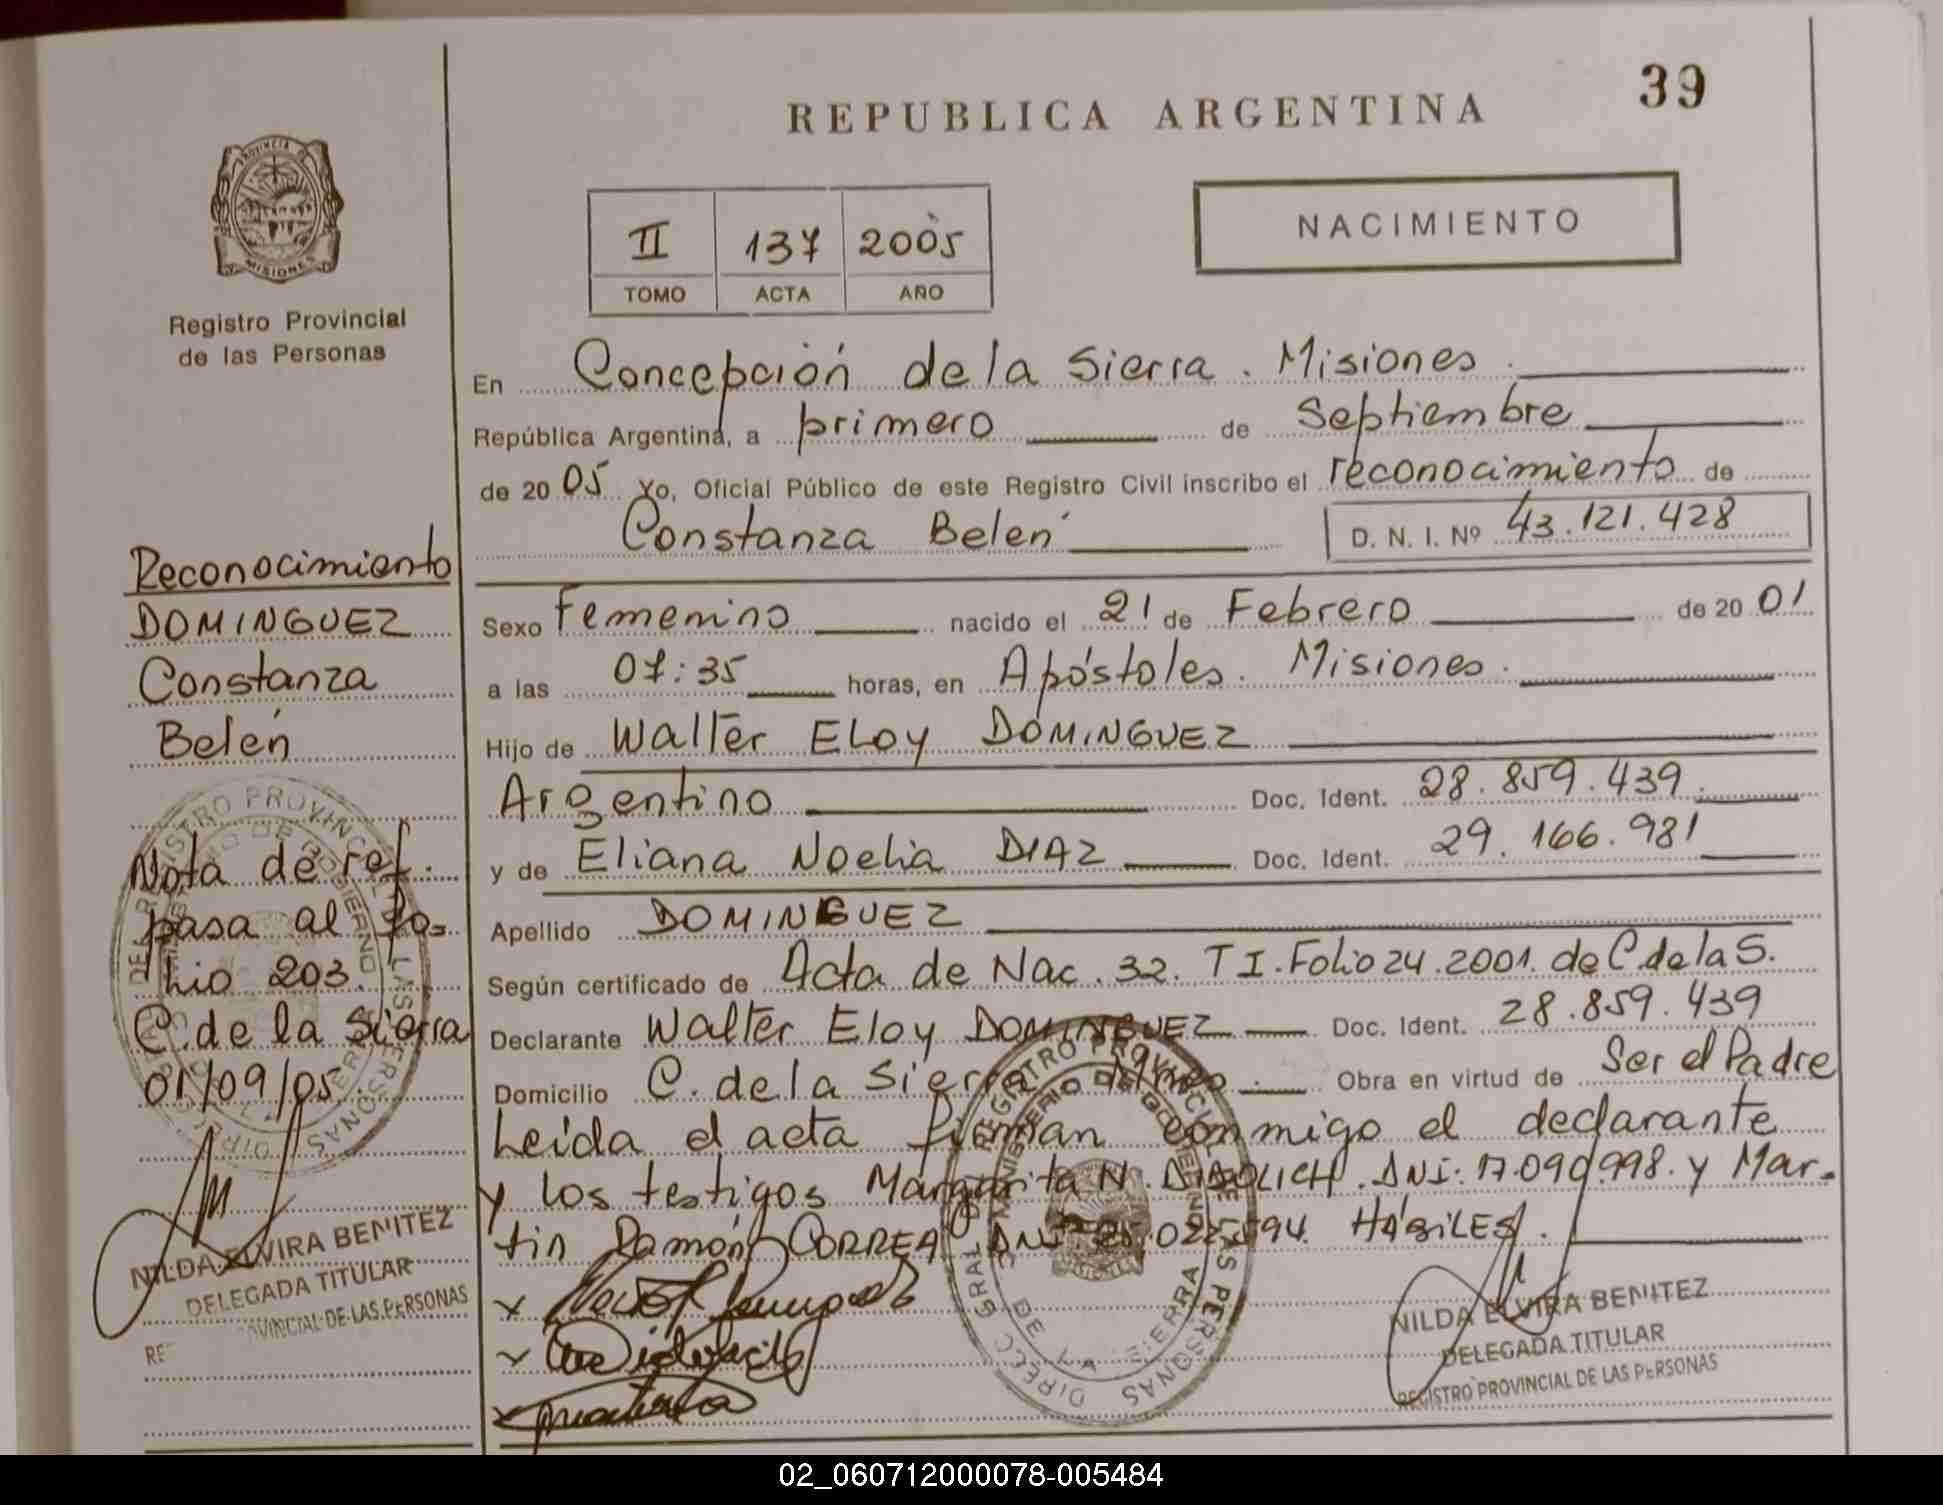 39
REPUBLICA ARGENTINA
PROVINCIA DE
MISIONES
Registro Provincial
de las Personas
II 137 2005
TOMO ACTA AÑO
NACIMIENTO
En Concepción de la Sierra. Misiones.
República Argentina, a primero de Septiembre
de 2005 Yo, Oficial Público de este Registro Civil inscribo el reconocimiento de
Constanza Belén D. N. I. Nº 43.121.428
Sexo Femenino nacido el 21 de Febrero de 2001
a las 07:35 horas, en Apóstoles. Misiones.
Hijo de Walter Eloy DOMINGUEZ
Argentino Doc. Ident. 28.859.439.
y de Eliana Noelia DIAZ Doc. Ident. 29.166.981
Apellido DOMINGUEZ
Según certificado de Acta de Nac. 32. T I. Folio 24. 2001. de C. de la S.
Declarante Walter Eloy DOMINGUEZ Doc. Ident. 28.859.439
Domicilio C. de la Sierra Mnes. Obra en virtud de Ser el Padre
Leida el acta firman conmigo el declarante
y los testigos Margarita N. DNI: 17.090.998. y Mar-
tin Ramón CORREA DNI: 25.025.594. HÁBILES.
Reconocimiento
DOMINGUEZ
Constanza
Belén
Nota de ref.
pasa al Fo-
lio 203.
C. de la Sierra
01/09/05
NILDA ELVIRA BENITEZ
DELEGADA TITULAR
PROVINCIAL DE LAS PERSONAS
NILDA ELVIRA BENITEZ
DELEGADA TITULAR
REGISTRO PROVINCIAL DE LAS PERSONAS
DIRECC GRAL DEL REGISTRO PROVINCIAL DE LAS PERSONAS
MINISTERIO DE GOBIERNO
DE LA SIERRA
02_060712000078-005484